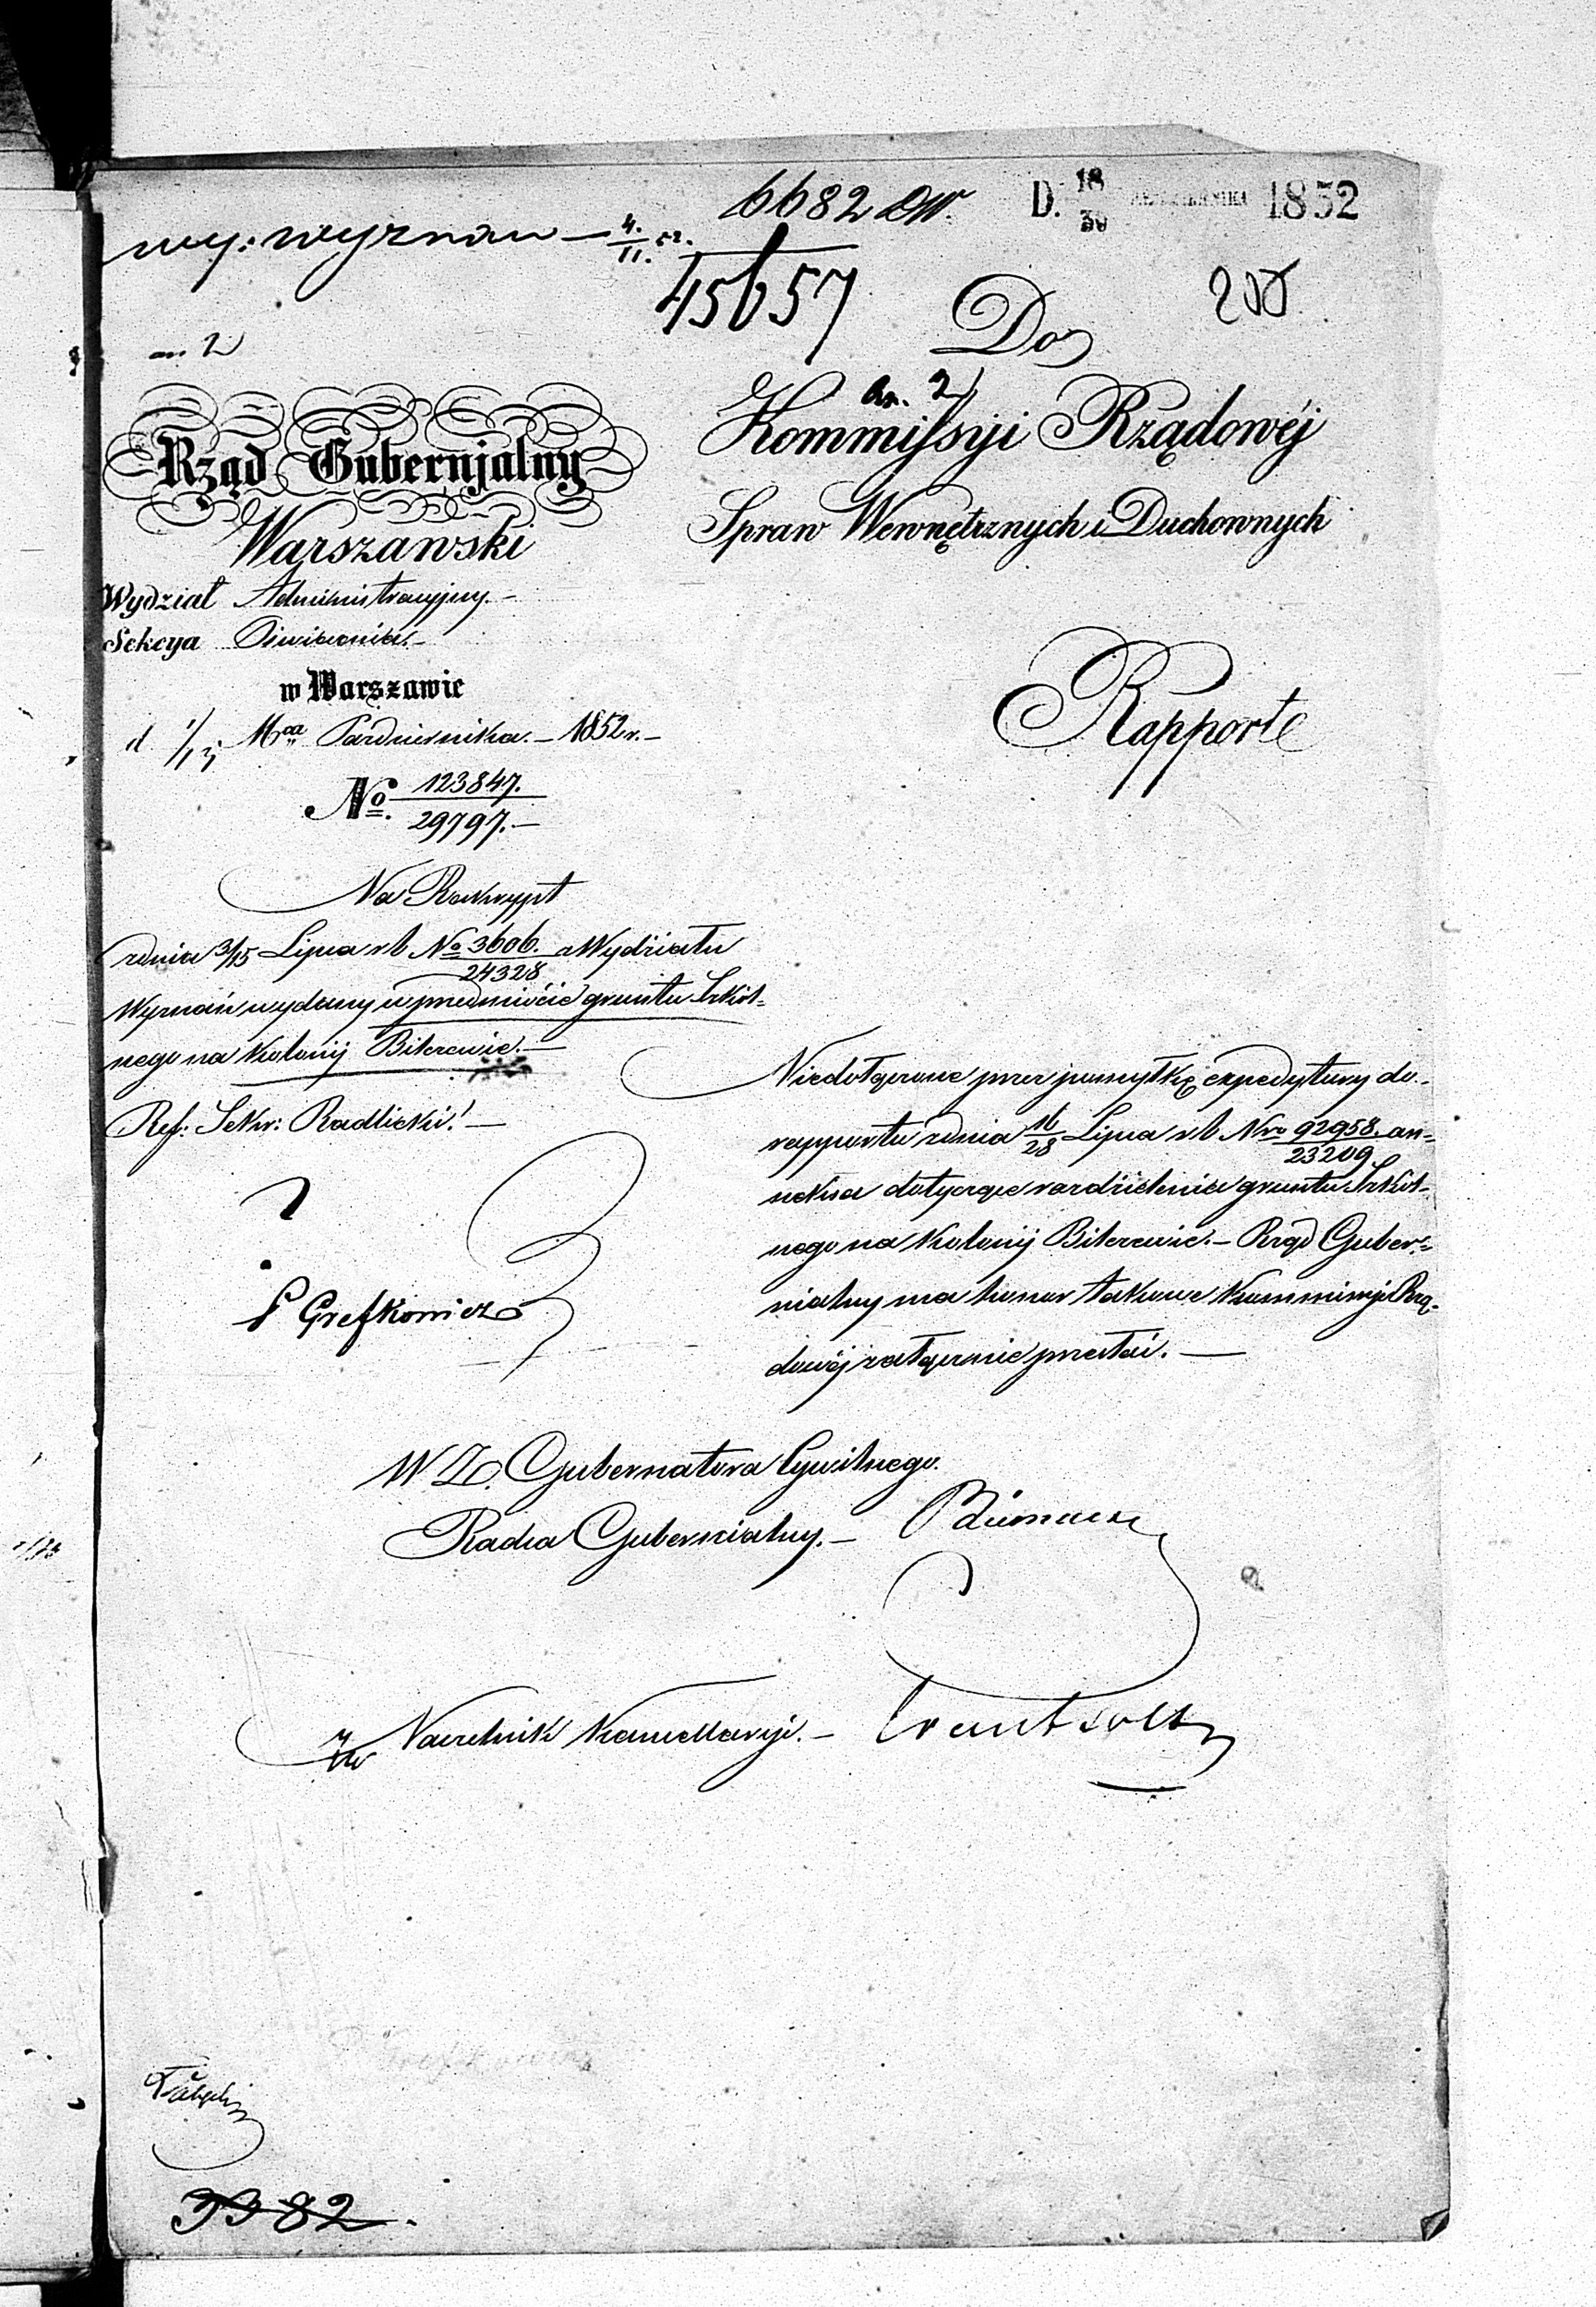 6682 DW.
D. 18/30 PAŹDZIERNIKA 1852
wy: wyznań — 4./11. 52.
45657
208
an. 2
Do
an. 2
Kommissyi Rządowéj
Spraw Wewnętrznych i Duchownych
Rapport
Rząd Gubernjalny
Warszawski
Wydział Administracyjny.—
Sekcya Oświecenia.—
w Warszawie
d. 1/13 Mca Pazdziernika.— 1852 r.—
No. 123847./29797.—
Na Reskrypt
z dnia 3/15 Lipca r b No 3606./24328 z Wydziału
Wyznań wydany w przedmiocie gruntu Szkol=
nego na Kolonij Bilczewie.—
Ref: Sekr: Radlicki.—
P Grefkowicz
Niedołączone przez pomyłkę expedytury do
rapportu z dnia 16/28 Lipca r b Nro 92958./23209 an=
nexa dotyczące rozdzielenia gruntu Szkol=
nego na Kolonij Bilczewie.— Rząd Guber=
nialny ma honor takowe Kommissyi Rzą=
dowéj załącznie przesłać.—
W Z. Gubernatora Cywilnego.
Radca Gubernialny.—
Naczelnik Kancellaryi.—
3382.